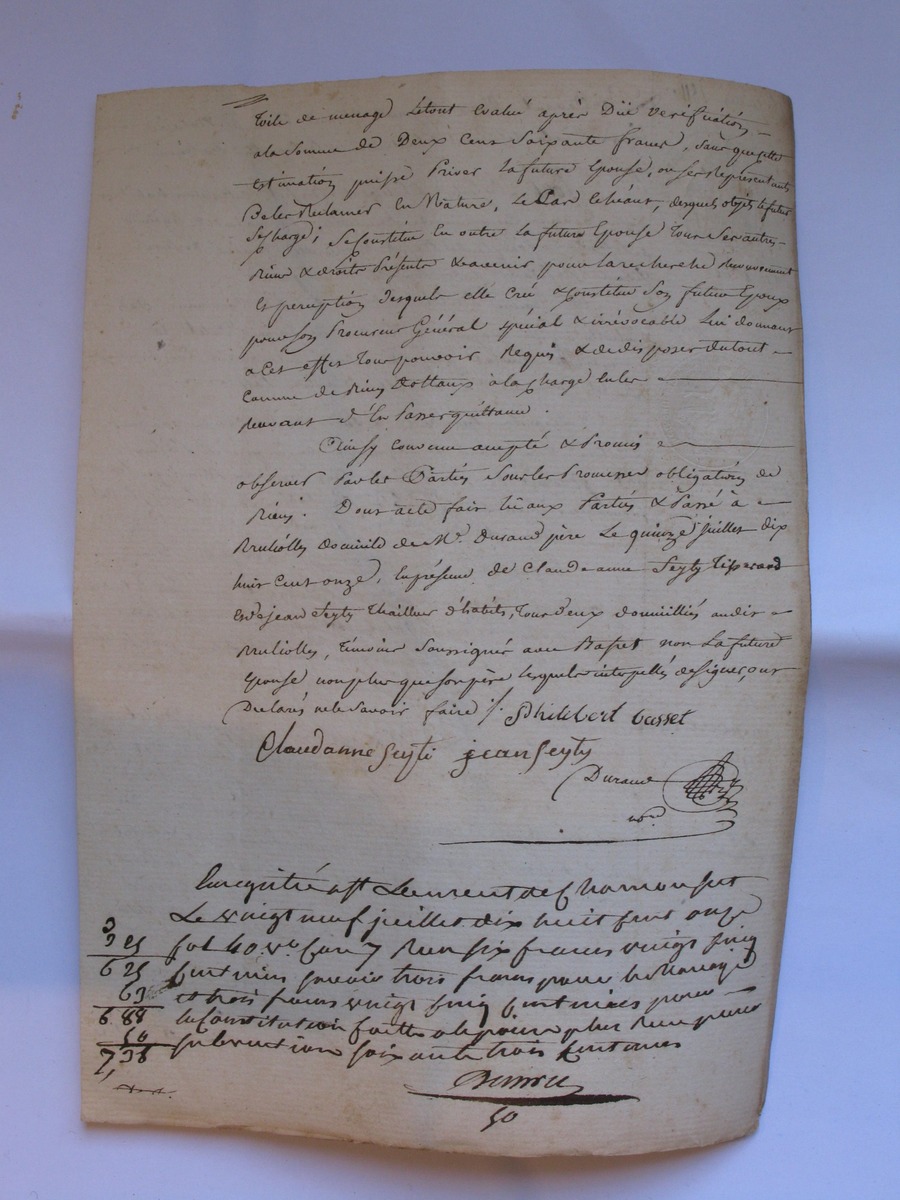 toile de menage letout evalué après Düe verification
ala Somme de Deux Cens Soixante francs, Sans que cette
estimation puisse Priver La future Epouse, ou ses Représentants
De les Réclamer En Nature, Le Cas échéant, desquels objets le futur
Se charge; Se Constitue En outre La future Epouse tous Ses autres
Biens & droits Présents & avenir pour la recherche recouvrement
Et perception desquels elle Crée & Constitue Son futur Epoux
pour Son Procureur Général spécial & irrévocable Lui donnant
a Cet effet tout pouvoir Requis & de disposer du tout
Comme de Biens Dottaux à la charge En les
Recevant d'En Passer quittance.
Ainsy convenu accepté & Promis
observer Par les Parties Sous les Promesses obligations de
Biens. Dont acte fait lû aux Parties & Passé à
Brulioles domicile de Mr. Durand père Le quinze juillet dix
huit Cent onze, En présence de Claudeanne Seyty Tisserand
et de jean Seyty thailleur d'habits, tous deux domiciliés audit
Brulioles, témoins Soussignés avec Basset non La future
Epouse non plus que son père lesquels interpellés de signer, ont
Déclarés ne le Savoir faire /. Philibert basset
Claudanne Seyti jean Seyty
Durand
nore
Enregistré a St Laurent de Chamousset
Le vingt neuf juillet dix huit cent onze
fol 40 vo Case 7 Reçu six francs vingt cinq
3
3 25 centimes savoir trois francs pour le mariage
6 25 et trois francs vingt cinq centimes pour
63 la Constitution faite a la future plus Reçu pour
6 88 subvention soixante trois centimes
50
7, 38
50